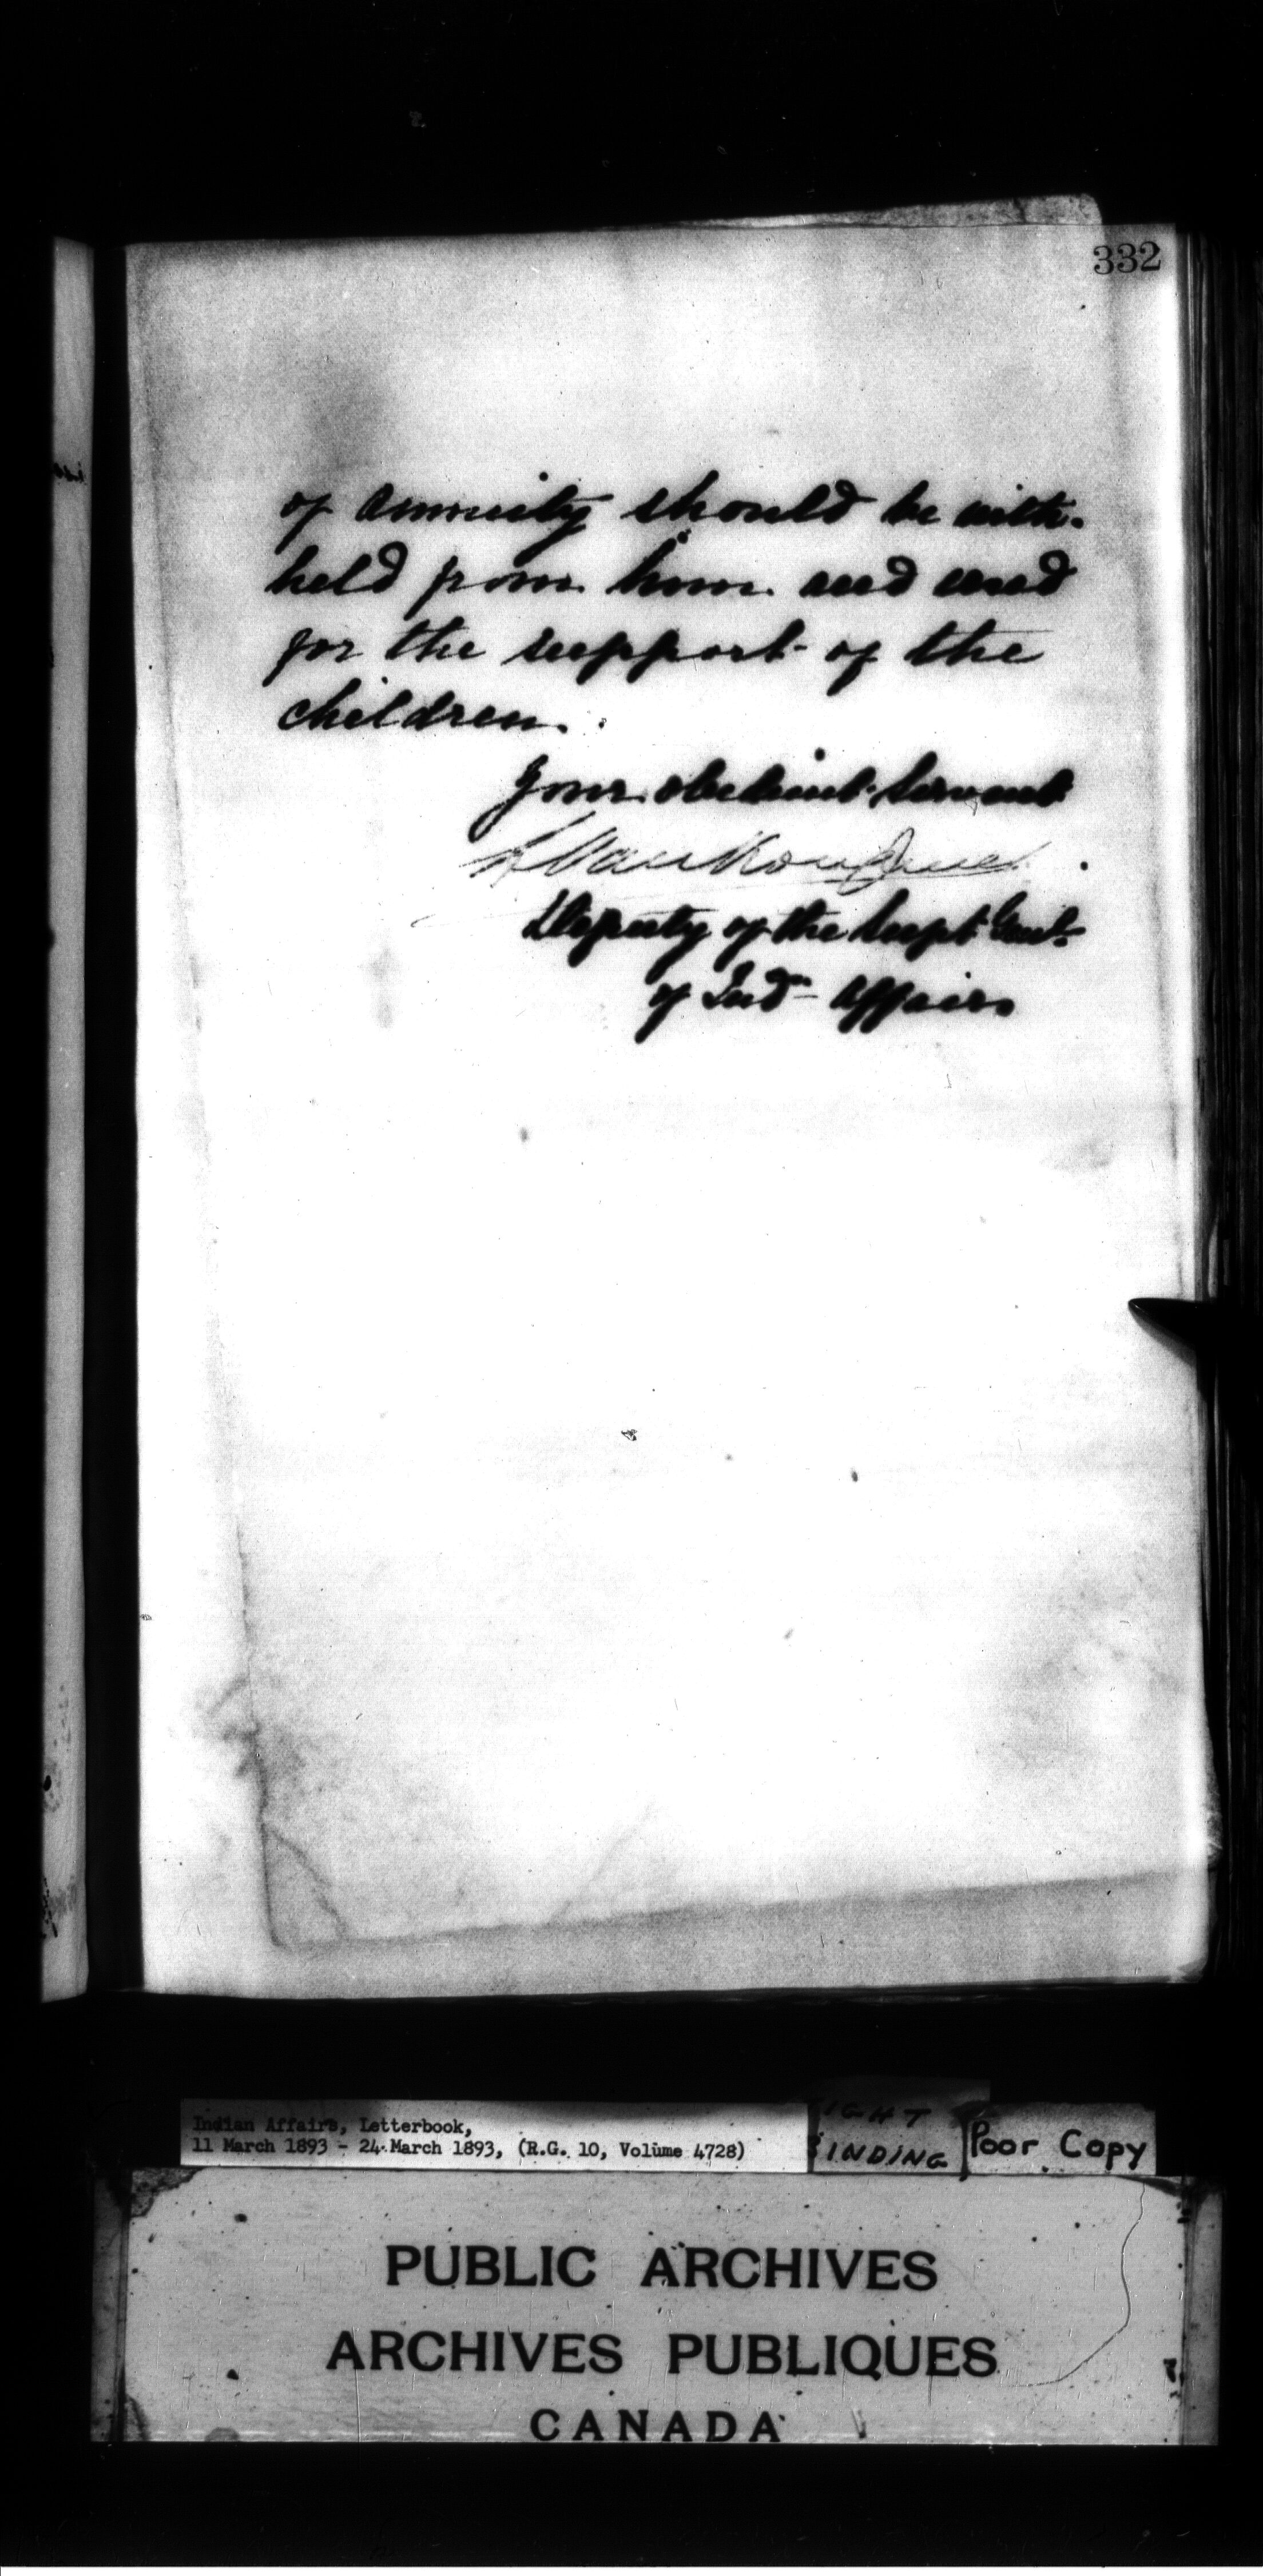 332
of annuity should be with-
held from him and used
for the support of the
children.
Your obedient servant
L Vankoughnet
Deputy of the Supt Genl.
of Ind— Affairs
Indian Affairs, Letterbook,
11 March 1893 - 24 March 1893, (R.G. 10, Volume 4728)
IGHT
INDING
Poor Copy
PUBLIC ARCHIVES
ARCHIVES PUBLIQUES
CANADA